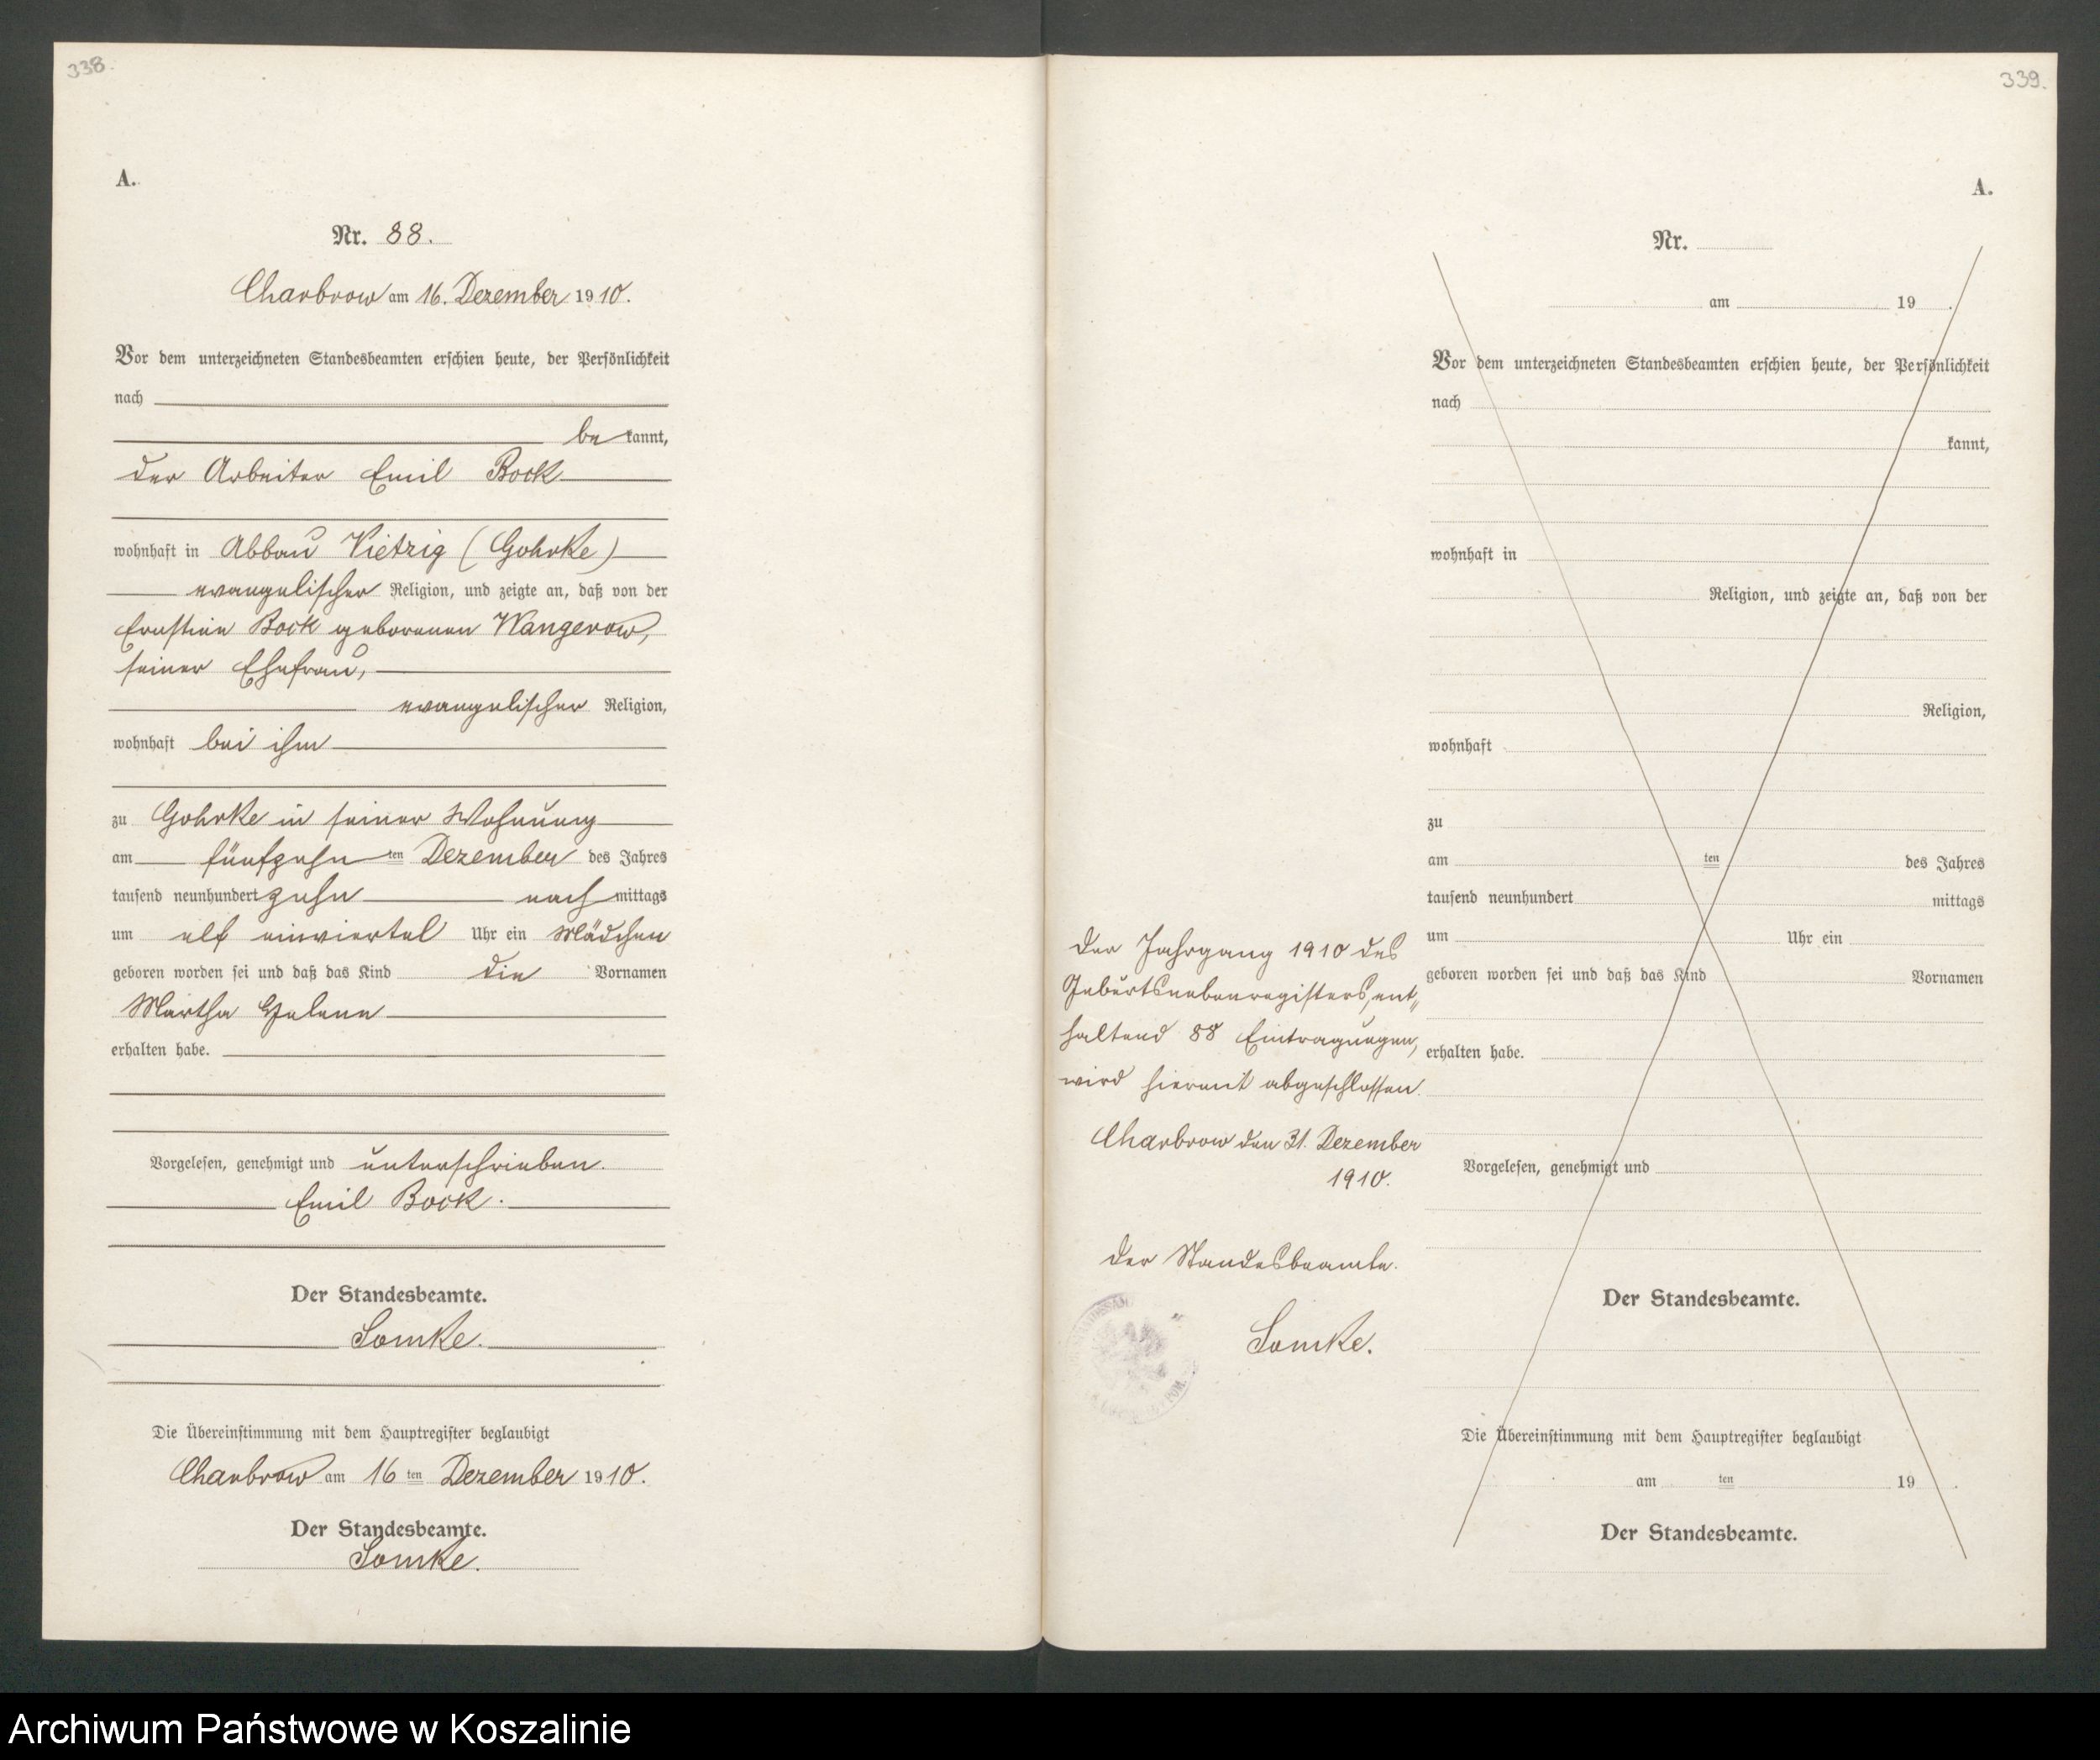 338.
A.
Nr. 88.
Charbrow am 16. Dezember 1910.
Vor dem unterzeichneten Standesbeamten erschien heute, der Persönlichkeit
nach
be kannt,
der Arbeiter Emil Bock
wohnhaft in Abbau Vietzig (Gohrke)
evangelischer Religion, und zeigte an, daß von der
Ernstine Bock geborenen Wangerow,
seiner Ehefrau,
evangelischer Religion,
wohnhaft bei ihm
zu Gohrke in seiner Wohnung
am fünfzehn ten Dezember des Jahres
tausend neunhundert zehn nach mittags
um elf einviertel Uhr ein Mädchen
geboren worden sei und daß das Kind die Vornamen
Martha Helene
erhalten habe.
Vorgelesen, genehmigt und unterschrieben.
Emil Bock.
Der Standesbeamte.
Lomke.
Die Übereinstimmung mit dem Hauptregister beglaubigt
Charbrow am 16 ten Dezember 1910.
Der Standesbeamte.
Lomke.
339.
A.
Der Jahrgang 1910 des
Geburtsnebenregisters, ent-
haltend 88 Eintragungen,
wird hiermit abgeschlossen.
Charbrow den 31. Dezember
1910.
Der Standesbeamte.
Lomke.
Nr.
am 19 .
Vor dem unterzeichneten Standesbeamten erschien heute, der Persönlichkeit
nach
kannt,
wohnhaft in
Religion, und zeigte an, daß von der
Religion,
wohnhaft
zu
am ten des Jahres
tausend neunhundert mittags
um Uhr ein
geboren worden sei und daß das Kind Vornamen
erhalten habe.
Vorgelesen, genehmigt und
Der Standesbeamte.
Die Übereinstimmung mit dem Hauptregister beglaubigt
am ten 19 .
Der Standesbeamte.
Archiwum Państwowe w Koszalinie